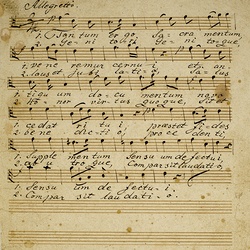 Allegretto
1. Tantum ergo, Sacramentum,
2. Genitori, Genitoque,
1. veneremur cernui, et an-
2. laus et Jubilatio, Salus
1. tiquum documentum novo
2. Honor virtus quoque, Sit et
1. cedat ritui, praestet fides
2. benedictio, procedenti
1. Supplementum Sensuum defectui,
2. ab utroque, Compar sit laudatio,
1. Sensuum defectui.
2. Compar sit laudatio.